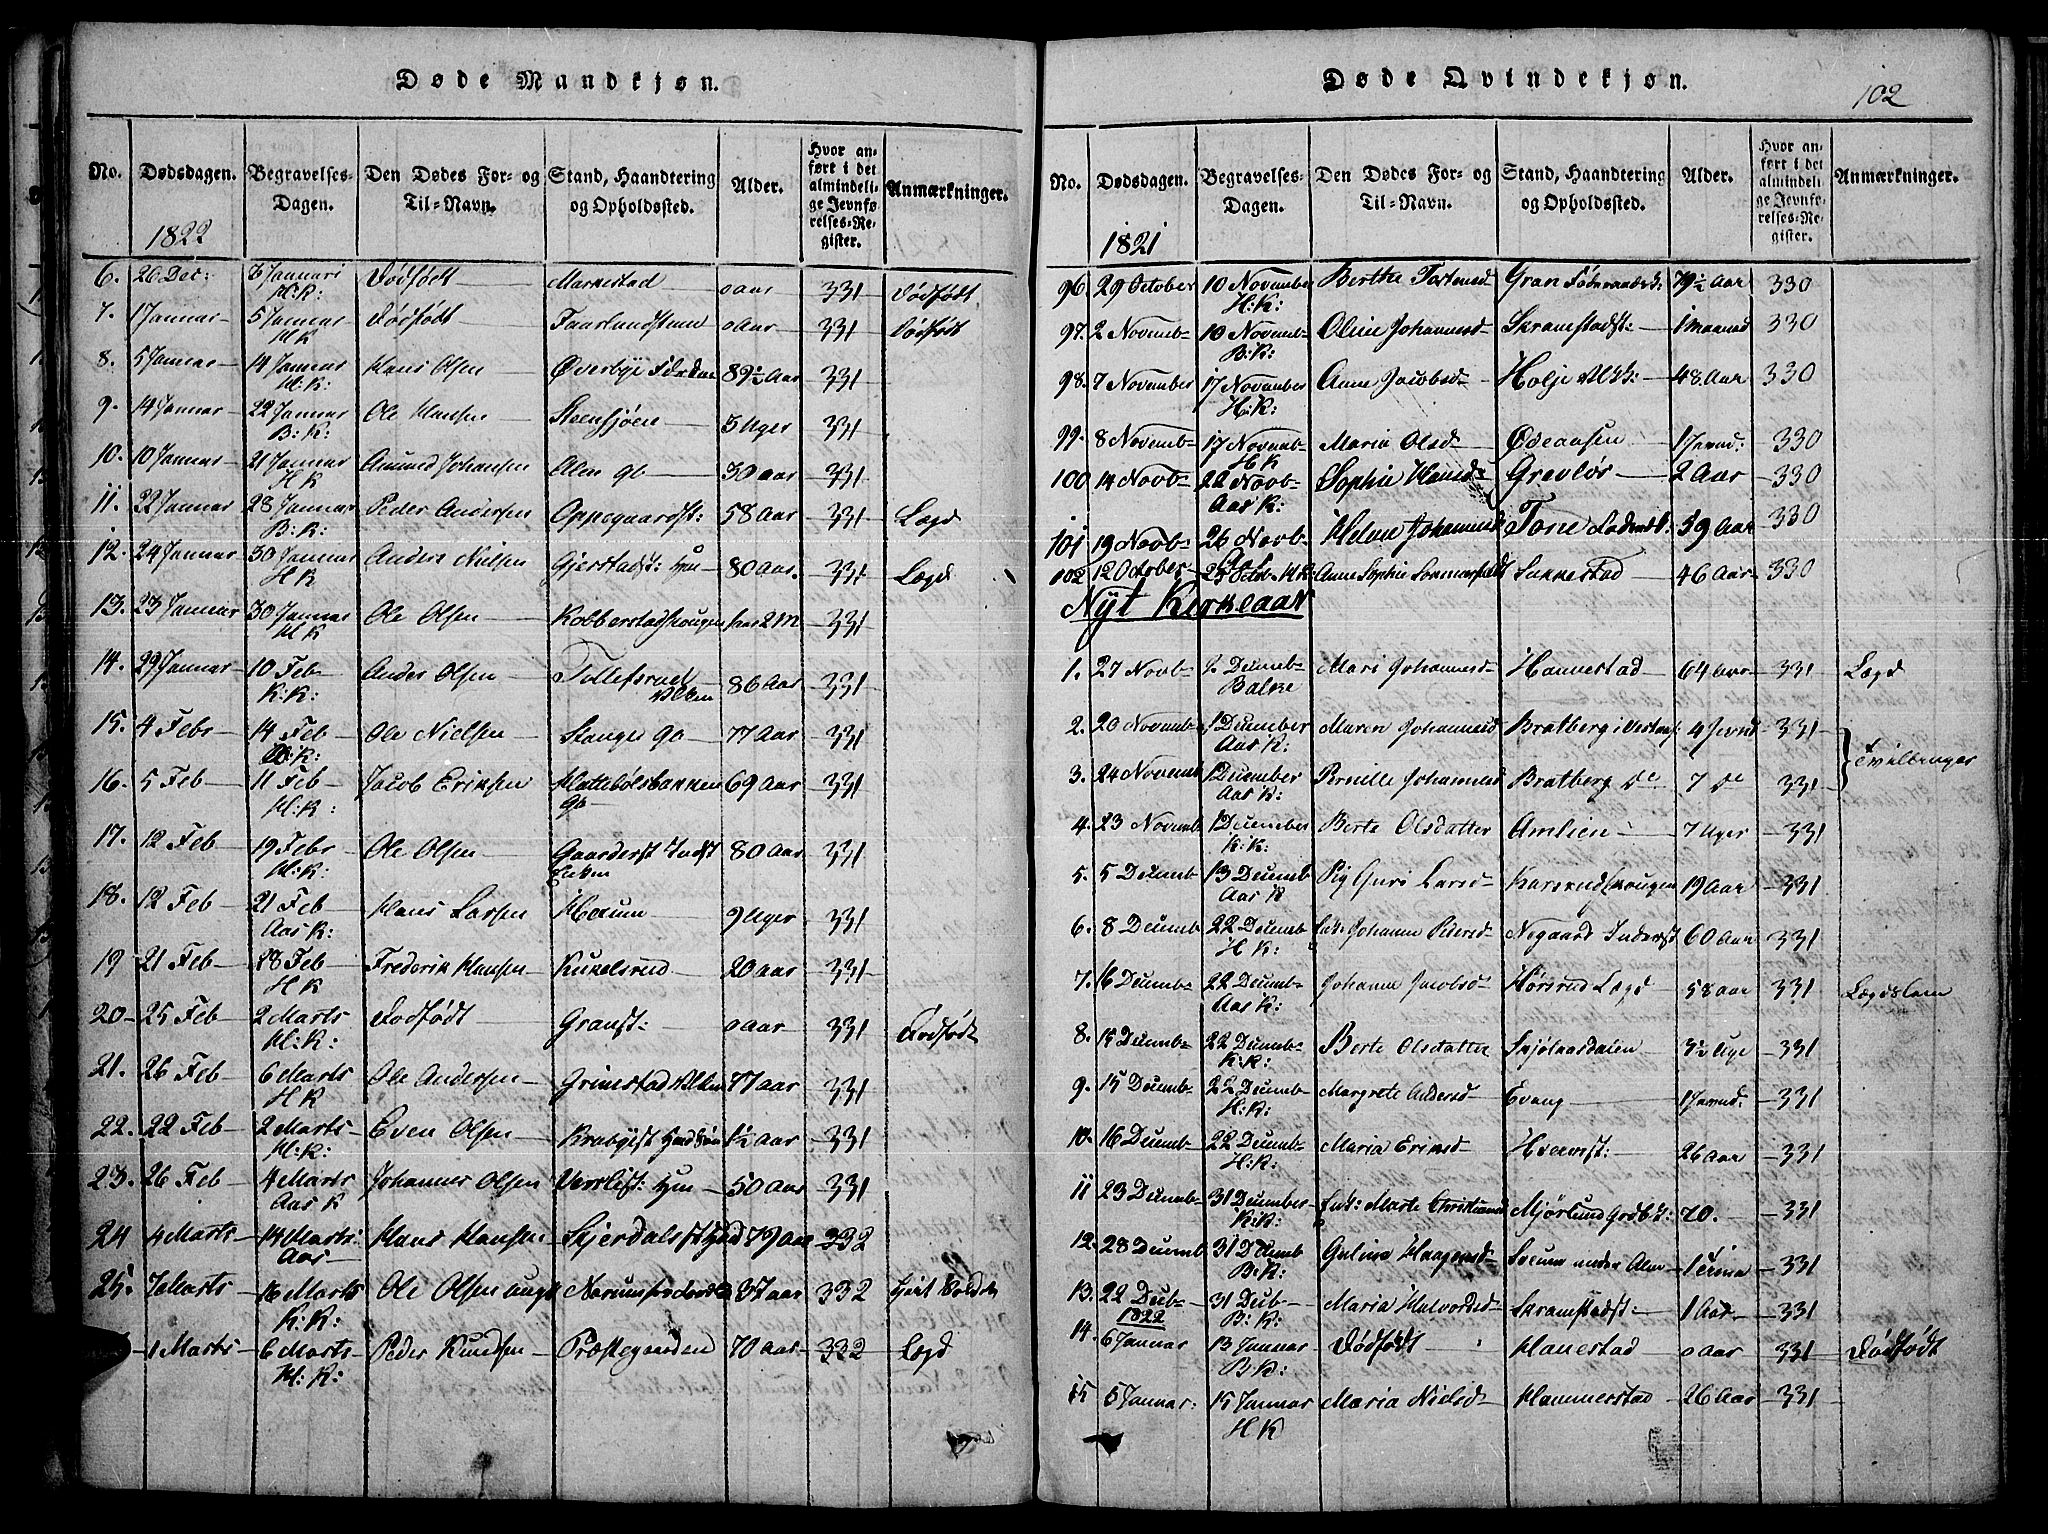 Døde Mandkjøn.
No. Dødsdagen. Begravelses-Dagen. Den Dødes For- og Til-Navn. Stand, Haandtering og Opholdssted. Alder. Hvor anført i det almindelige Jevnførelses-Register. Anmærkninger.
1822
6. 26 Dec: 3 Januari H:K: Dødfødt Markestad 0 aar 331 Dødfødt
7. 1 Januar 5 Januar HK Dødfødt Faarlundstuen 0 Aar 331 Dødfødt
8. 5 Januar 14 Januar H:K: Hans Olsen Øverbye 89½ Aar 331
9. 14 Januar 22 Januar B:K: Ole Hansen Steensjøen 3 Uger 331
10. 10 Januar 21 Januar HK Amund Johansen Alm 30 aar 331
11. 22 Januar 28 Januar B:K: Peder Andersen Oppegaardst: 58 Aar 331 Lægd
12. 24 Januar 30 Januar HK Anders Nielsen Gjerstadst: 80 Aar. 331 Lægd
13. 23 Januar 30 Januar HK Ole Olsen Kobberstadskougen 2M 331
14. 29 Januar 10 Feb K:K: Anders Olsen Tollefsrud 86 Aar 331
15. 4 Febr 14 Feb K: Ole Nielsen Stange 77 Aar 331
16. 5 Feb 11 Feb H:K: Jacob Eriksen Hattebølsbakken 69 Aar 331
17. 12 Feb 19 Febr H:K: Ole Olsen Gaarderst Indst 80 Aar 331
18. 12 Feb 21 Feb Aas K: Hans Larsen Hexum 9 Uger 331
19 21 Feb 28 Feb HK Frederik Hansen Kukelsrud 20 aar 331
20 25 Feb 2 Marts H:K: Dødfødt Granst: 0 aar 331 Dødfødt
21. 26 Feb 6 Marts HK Ole Andersen Grimstad 77 aar 331
22. 22 Feb 2 Marts H:K: Even Olsen Brabyist 1½ aar 331
23. 26 Feb 4 Marts Aas K Johannes Olsen 50 Aar 331
24 4 Marts 14 Marts: Aas Hans Hansen Skjerdalst 79 Aar 332
25. 7 Marts 18 Marts K:K: Ole Olsen ungk 37 aar 332
1 Marts 6 Marts H:K: Peder Knudsen Præstegaarden 70 aar 332 Lægd
Døde Qvindekjøn.
102
No. Dødsdagen. Begravelses-Dagen. Den Dødes For- og Til-Navn. Stand, Haandtering og Opholdssted. Alder. Hvor anført i det almindelige Jevnførelses-Register. Anmærkninger.
1821
96. 29 October 10 November H:K: Berthe Torstensd Gran 79½ Aar 330
97. 2 Novemb 10 Novemb B:K: Oline Johannesd Skramstadst: 1 maaned 330
98. 7 November 17 November H:K: Anne Jacobsd Holje 48 Aar 330
99. 8 Novemb 17 Novemb HK Maria Olsd Ødeansen 1 330
100 14 Novb 22 Novb Aas K: Sophie Hansd Grevlør 2 Aar 330
101 19 Novb 26 Novb Helene Johannesd Tone 59 Aar 330
102 12 October 25 Octbr KK: Anne Sophie Sommerfeldt Sukkestad 46 Aar 330
Nÿt Kirkeaar
1. 27 Novb 2 Decemb Balke Mari Johannesd Hannestad 64 Aar 331 Lægd
2. 20 Novemb 1 December Aas K: Maren Johannesd Bratberg 4 331
Tvillinger
3. 24 Novemb 1 December Aas K: Pernille Johannesd Bratberg do 7 do 331
4. 23 Novemb 1 December K:K: Berte Olsdatter Amlien 7 Uger 331
5. 5 Decemb 13 Decemb Aas K Pig Guri Larsd Karsrudskougen 19 Aar 331
6. 8 Decemb 22 Decemb H K: Enk: Johanne Pedersd Negaard Inderst 60 Aar 331
7. 16 Decemb 22 Decemb Aas K: Johanne Jacobsd Hørsrud Lægd 58 aar 331 Lægdslem
8. 15 Decemb 22 Decemb K:K: Berte Olsdatter Skjølaasdalen 3½ Uge 331
9. 15 Decemb 22 Decemb H:K: Margrete Andersd Evang 1 331
10. 16 Decemb 22 Decemb H:K: Maria Eriksd 26 Aar 331
11 23 Decemb 31 December K:K: Enk: Marte Christiansd Mjørlund 70. 331
12. 28 Decemb 31 Decemb B:K: Guline Haagensd Sveum under Alm 331
13. 22 Decb 31 Decb B:K: Maria Halvorsd Skramstadst: 1 Aar 331
1822
14. 6 Januar 13 Januar BK: Dødfødt Hanestad 0 aar 331 Dødfødt
15 5 Januar 15 Januar HK Maria Nielsd Hammerstad 26 Aar 331